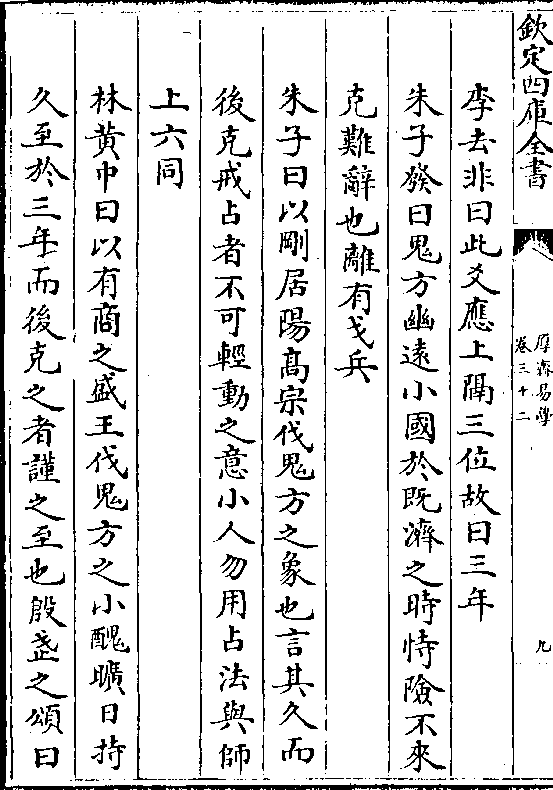 欽定四庫全書
厚齋易學
卷三十二
九
李去非曰此爻應上隔三位故曰三年
朱子發曰鬼方幽遠小國於既濟之時恃險不來
克難辭也離有戈兵
朱子曰以剛居陽高宗伐鬼方之象也言其久而
後克戒占者不可輕動之意小人勿用占法與師
上六同
林黃巾曰以有商之盛王伐鬼方之小醜曠日持
久至於三年而後克之者謹之至也殷武之頌曰